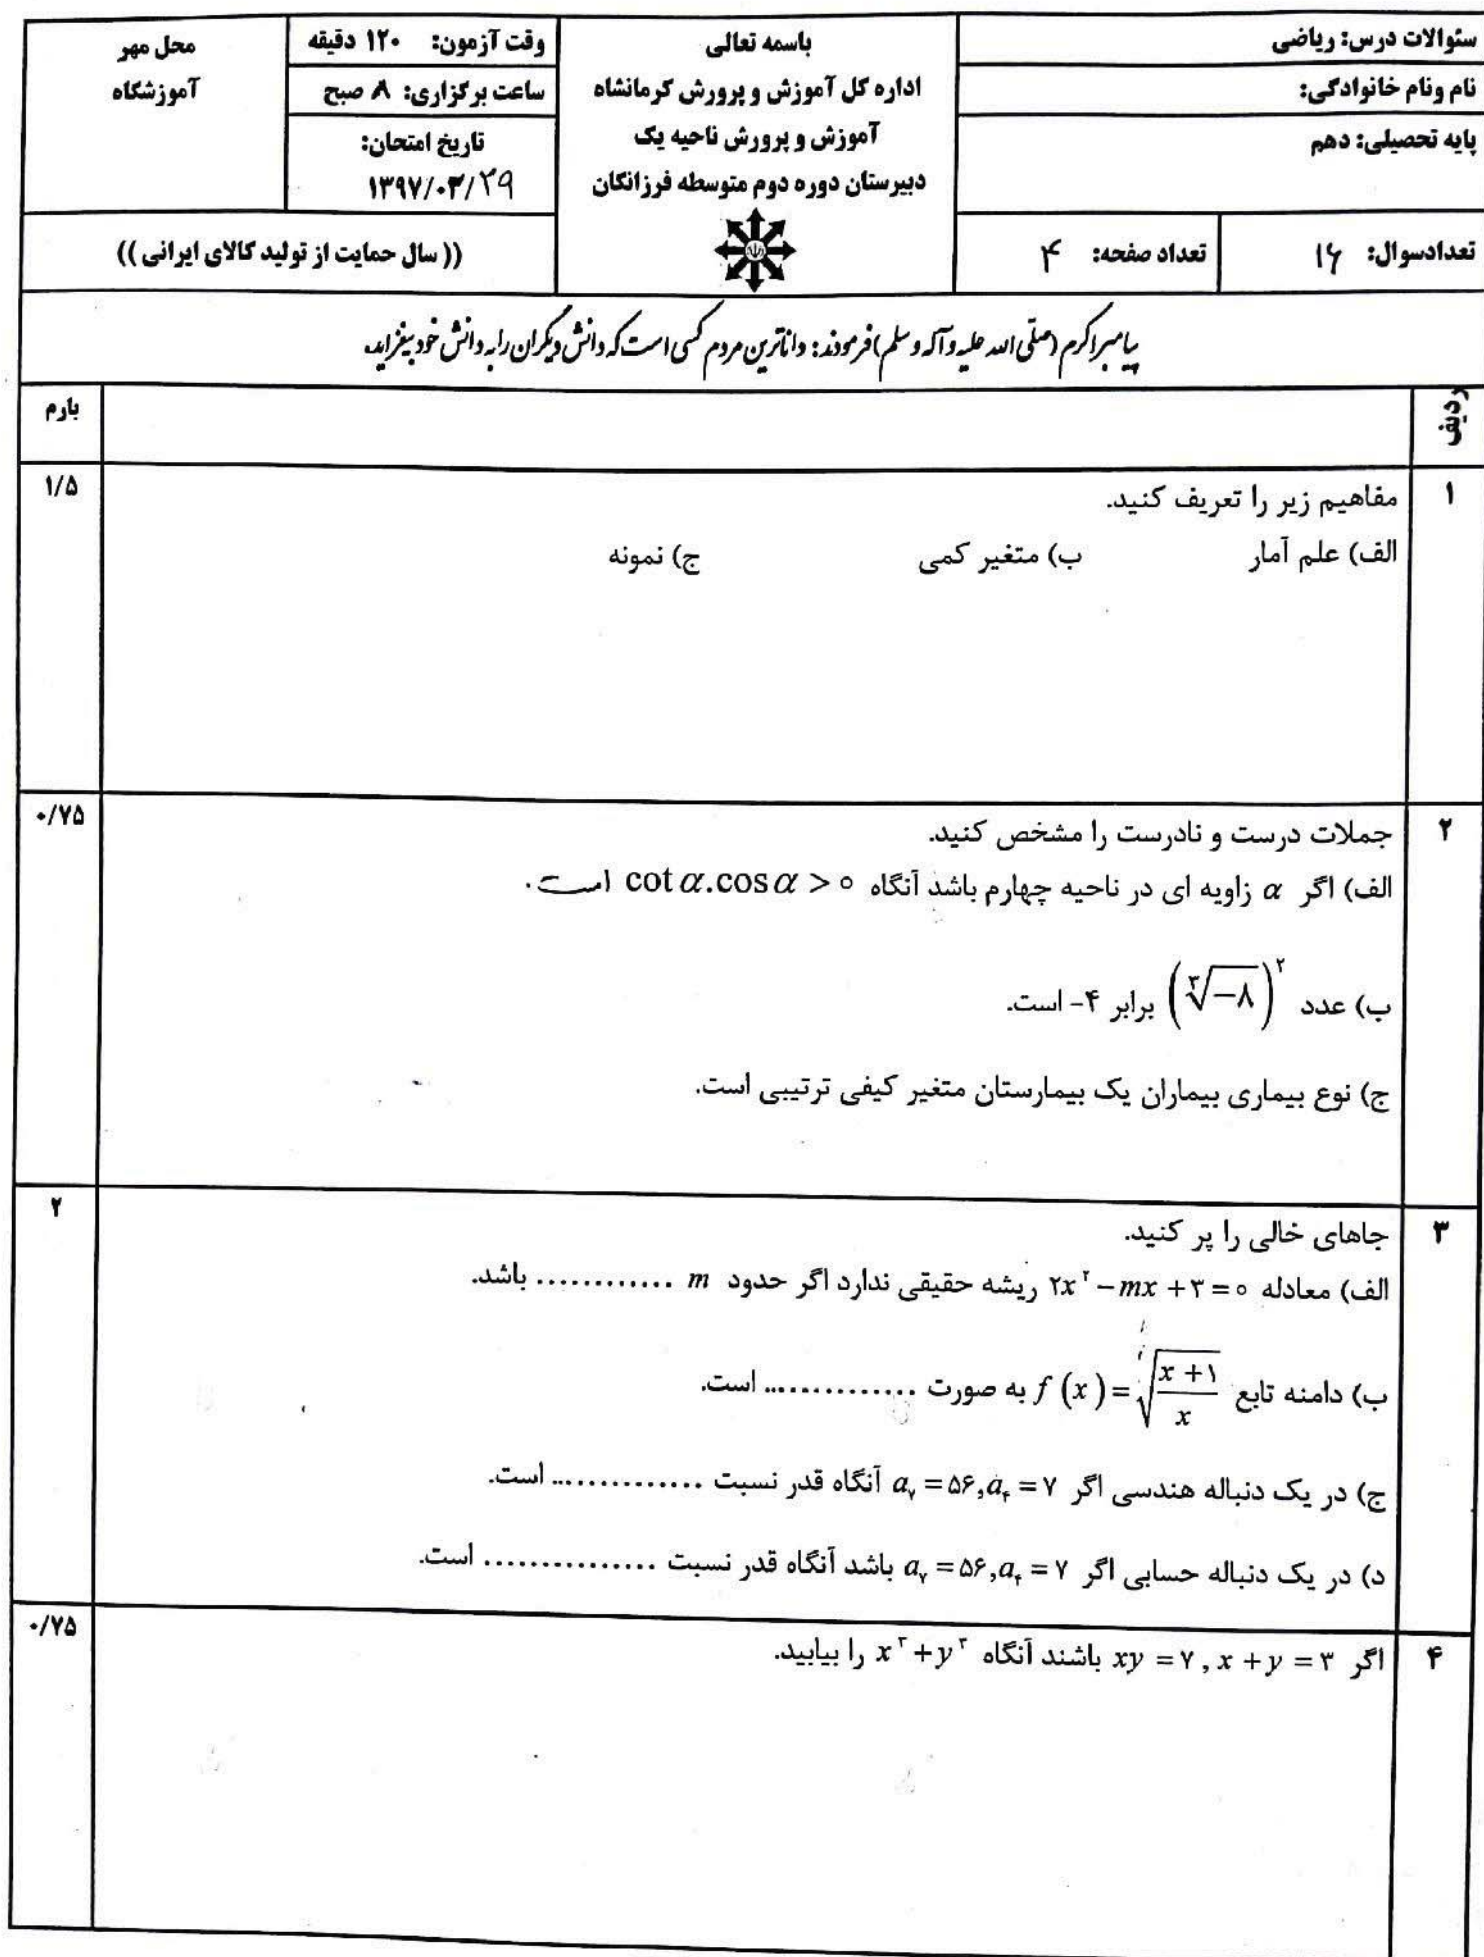 سئوالات درس: ریاضی
نام ونام خانوادگی:
پایه تحصیلی: دهم
تعدادسوال: ۱۶
تعداد صفحه: ۴
باسمه تعالی
اداره کل آموزش و پرورش کرمانشاه
آموزش و پرورش ناحیه یک
دبیرستان دوره دوم متوسطه فرزانگان
وقت آزمون: ۱۲۰ دقیقه
ساعت برگزاری: ۸ صبح
تاریخ امتحان:
۱۳۹۷/۰۳/۲۹
محل مهر
آموزشگاه
(( سال حمایت از تولید کالای ایرانی ))
پیامبر اکرم (صلّی الله علیه وآله وسلم) فرمودند: داناترین مردم کسی است که دانش دیگران را به دانش خود بیفزاید.
ردیف
بارم
۱
مفاهیم زیر را تعریف کنید.
۱/۵
الف) علم آمار ب) متغیر کمی ج) نمونه
۲
جملات درست و نادرست را مشخص کنید.
۰/۷۵
الف) اگر α زاویه ای در ناحیه چهارم باشد آنگاه cot α.cos α > ۰ است.
ب) عدد (∛(−۸))^۲ برابر ۴- است.
ج) نوع بیماری بیماران یک بیمارستان متغیر کیفی ترتیبی است.
۳
جاهای خالی را پر کنید.
۲
الف) معادله ۲x^۲ − mx + ۳ = ۰ ریشه حقیقی ندارد اگر حدود m ............ باشد.
ب) دامنه تابع f (x) = √((x + ۱)/x) به صورت .............. است.
ج) در یک دنباله هندسی اگر a₇ = ۵۶, a₄ = ۷ آنگاه قدر نسبت .............. است.
د) در یک دنباله حسابی اگر a₇ = ۵۶, a₄ = ۷ باشد آنگاه قدر نسبت ............... است.
۴
اگر xy = ۷ , x + y = ۳ باشند آنگاه x^۳ + y^۳ را بیابید.
۰/۷۵